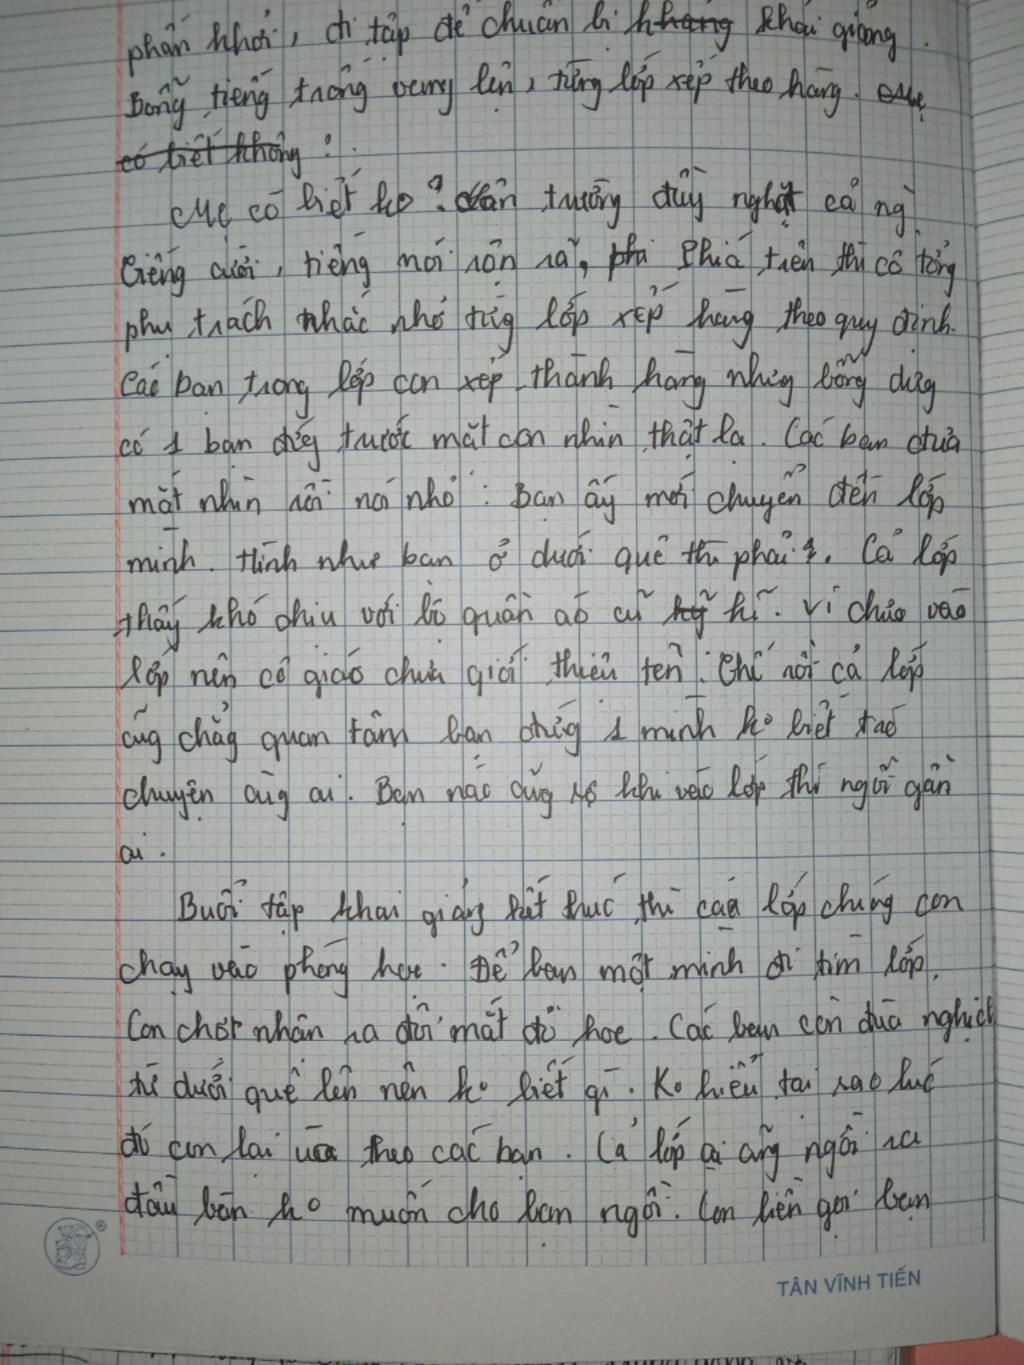 phấn khởi, đi tập để chuẩn bị khai giảng.
Bỗng tiếng trống vang lên, từng lớp xếp theo hàng. Mẹ
có biết không?
Mẹ có biết ko? Sân trường đầy nghẹt cả ng
tiếng cười, tiếng nói rôn rã, phi Phiá trên thì cô tổng
phụ trách nhắc nhở từg lớp xếp hàng theo quy định.
Các bạn trong lớp con xếp thành hàng nhưg bỗng dưg
có 1 bạn đứg trước mặt con nhìn thật lạ. Các bạn đưa
mắt nhìn rồi nói nhỏ: Bạn ấy mới chuyển đến lớp
mình. Hình như bạn ở dưới quê thì phải?. Cả lớp
thấy khó chịu với bộ quần áo cũ kỹ kĩ. Vì chưa vào
lớp nên cô giáo chưa giới thiệu tên. Thế rồi cả lớp
cũg chẳg quan tâm bạn đứg 1 mình ko biết trao
chuyện cùg ai. Bạn nào cũg sợ khi vào lớp thì ngồi gần
ai.
Buổi tập khai giảng kết thúc thì cả lớp chúng con
chạy vào phòng học. Để bạn một mình đi tìm lớp.
Con chợt nhận ra đôi mắt đỏ hoe. Các bạn còn đùa nghịch
từ dưới quê lên nên ko biết gì. Ko hiểu tại sao lúc
đó con lại vừa theo các bạn. Cả lớp ai cũg ngồi ra
đầu bàn ko muốn cho bạn ngồi. Con liền gọi bạn
TÂN VĨNH TIẾN